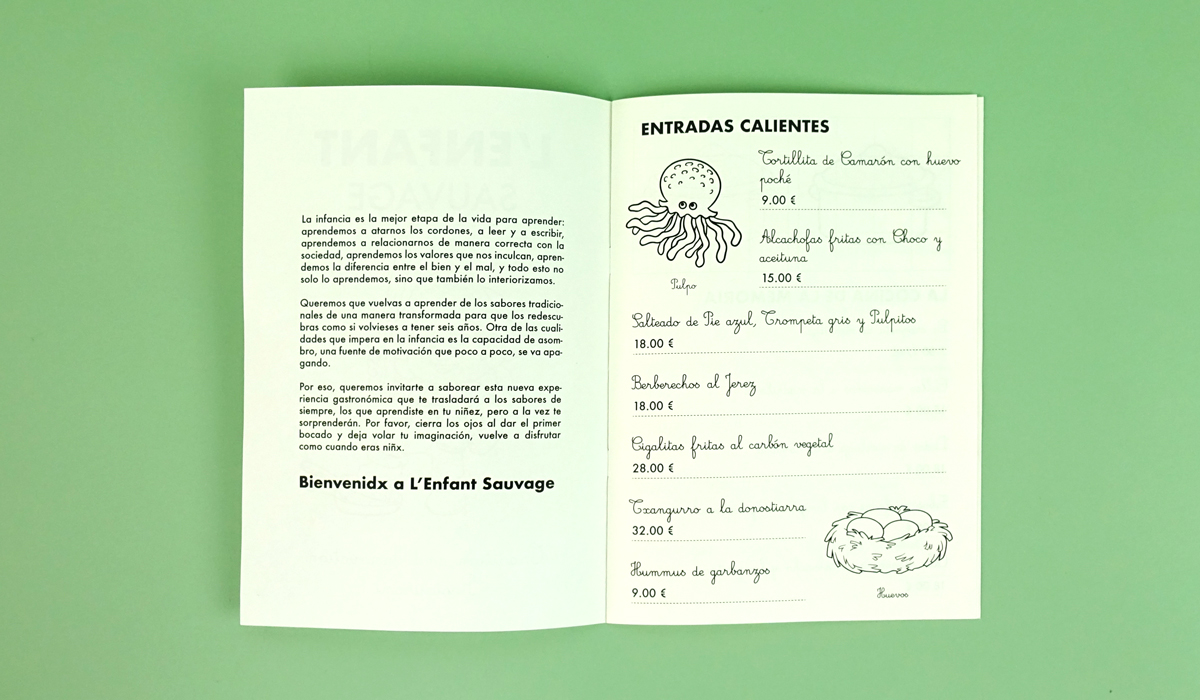 La infancia es la mejor etapa de la vida para aprender:
aprendemos a atarnos los cordones, a leer y a escribir,
aprendemos a relacionarnos de manera correcta con la
sociedad, aprendemos los valores que nos inculcan, apren-
demos la diferencia entre el bien y el mal, y todo esto no
solo lo aprendemos, sino que también lo interiorizamos.
Queremos que vuelvas a aprender de los sabores tradicio-
nales de una manera transformada para que los redescu-
bras como si volvieses a tener seis años. Otra de las cuali-
dades que impera en la infancia es la capacidad de asom-
bro, una fuente de motivación que poco a poco, se va apa-
gando.
Por eso, queremos invitarte a saborear esta nueva expe-
riencia gastronómica que te trasladará a los sabores de
siempre, los que aprendiste en tu niñez, pero a la vez te
sorprenderán. Por favor, cierra los ojos al dar el primer
bocado y deja volar tu imaginación, vuelve a disfrutar
como cuando eras niñx.
Bienvenidx a L'Enfant Sauvage
ENTRADAS CALIENTES
Tortillita de Camarón con huevo
poché
9.00 €
Alcachofas fritas con Choco y
aceituna
15.00 €
Pulpo
Salteado de Pie azul, Trompeta gris y Pulpitos
18.00 €
Berberechos al Jerez
18.00 €
Cigalitas fritas al carbón vegetal
28.00 €
Txangurro a la donostiarra
32.00 €
Hummus de garbanzos
9.00 €
Huevos